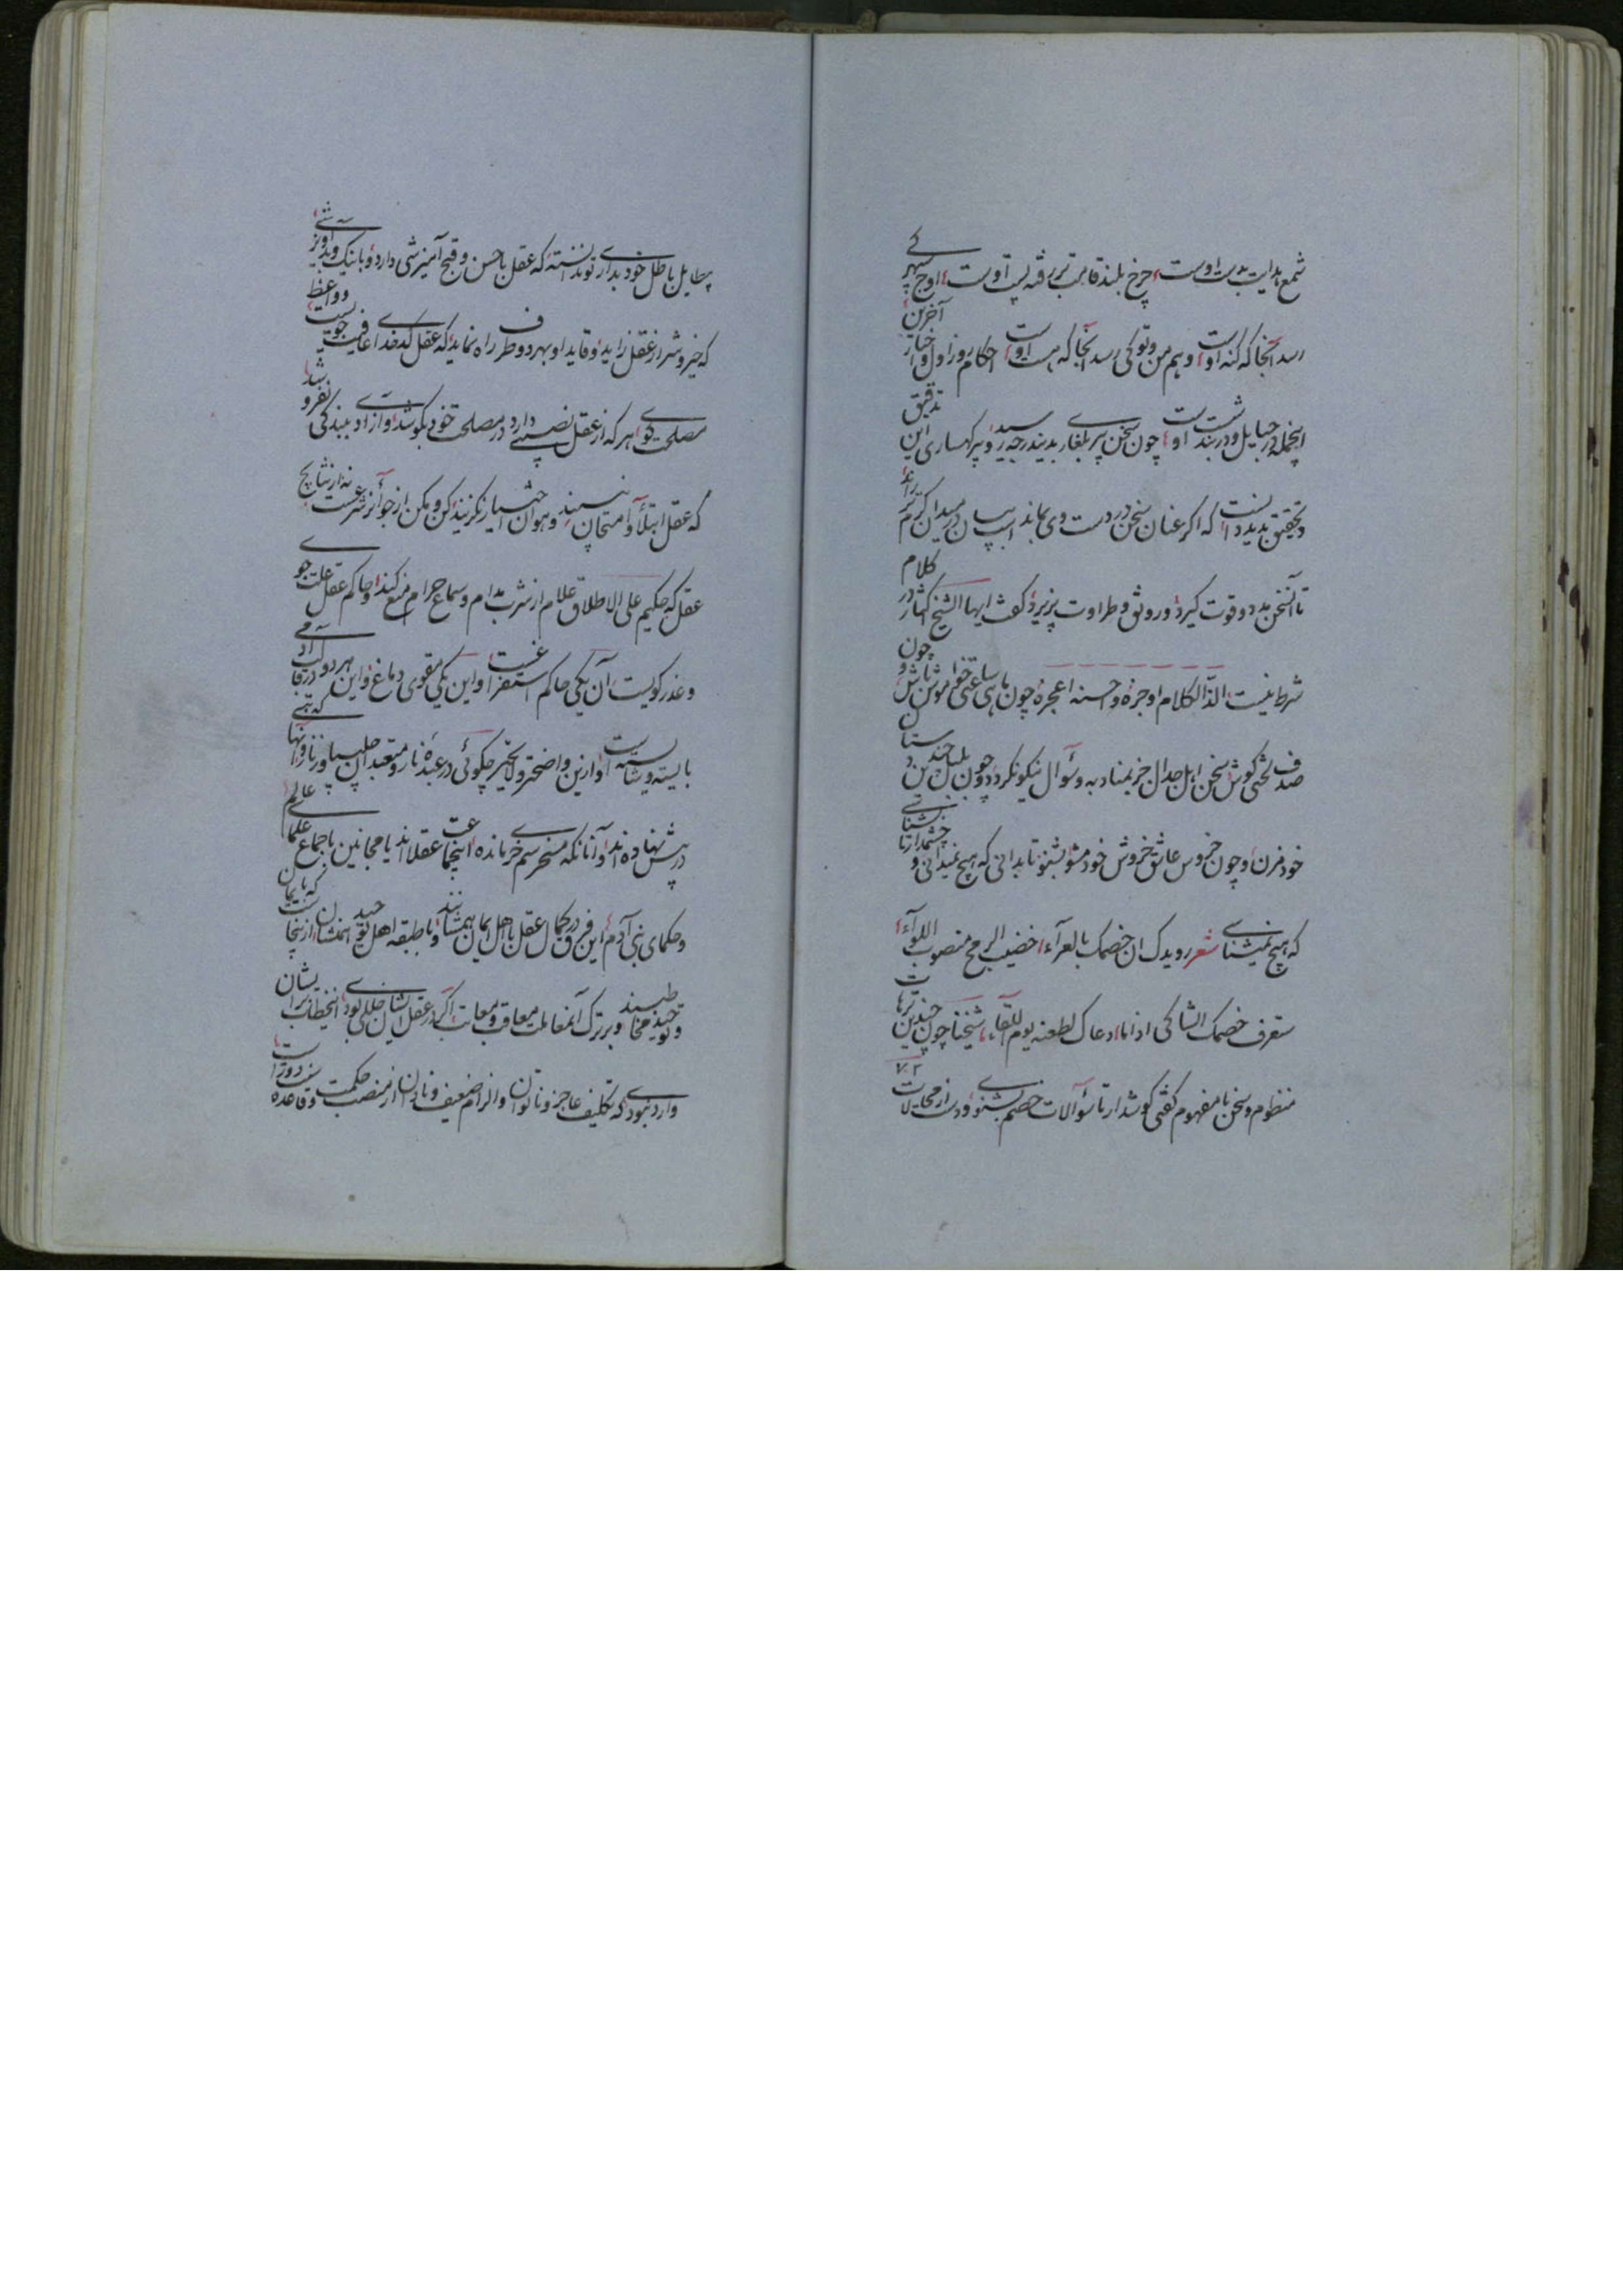 شمع هدایت بدست اوست، چرخ بلند قامت بربرفته پست اوست، اوج سپهر کی
رسد آنجا که کنه اوست، وهم من و تو کی رسد آنجا که هست اوست، احکام روز اول و اخبار آخرین
اینجمله در حبایل و در بند شست اوست، چون سخن پیر بلغاری بدیندرجه رسید، و پیر کهساری این تدقیق
و تحقیق بدید دانست که اگر عنان سخن در دست وی بماند اسب بیان در میدان گرم تر راند
تا آن سخن مدد و قوت گیرد، و رونق و طراوت پزیرد، گفت ایها الشیخ اکثار در کلام
شرط نیست، الذ الکلام اوجزه، و احسنه اعجزه، چون ماهی ساعتی خاموش باش و چون
صدف لختی گوش، سخن اهل جدال جز بمناوبه و سؤال نیکو نگردد، و چون بلبل چندین دستان
خود مزن، و چون خروس عاشق خروش خود مشو، بشنو تا بدانی که هیچ نمیدانی، و چشمدار تا بشناسی
که هیچ نمیشناسی شعر رویدک ان خصمک بالعرآء، خضیب الرمح منصوب اللوآء،
ستعرف خصمک الشاکی اذا ما، دعاک لطعنه یوم اللقآء، شیخنا چون چندین ترهات
منظوم و سخن نامفهوم گفتی گوشدار تا سؤآلات خصم بشنوی، و دست از محالات
بباطل خود بداری تو ندانسته که عقل با حسن و قبح آمیزشی دارد، و با نیک و بد آویزشی،
که خیر و شر از عقل زاید، و قاید او بهر دو طرف راه نماید، که عقل کدخدای عافیت جویست، و واعظ
مصلحت گوی، هر که از عقل نصیبی دارد در مصلحت خود بکوشد، و آزادی ببندگی نفروشد،
که عقل ابتلآ و امتحان نپسندد، و هوان اختیار نکند، کن و مکن از جوآنز شرعست، نه از نتایج
عقل که حکیم علی الاطلاق غلام از شرب مدام و سماع حرام منع کند، و حاکم عقل علت جوی
و عذر گویست، آن یکی حاکم استفراغست، و این یکی مقوی دماغ، و این هر دو در قالب آدمی
بایسته و شایسته است، و ازین واضحتر و لایحتر چگوئی در عبدهٔ نار و متعبدان چلیپا و زنار، آنها که بتی
در پیش نهاده‌اند، و آنانکه مسخر سم خری مانده، اینجماعت عقلااند یا مجانین باجماع علمای عالم
و حکمای بنی آدم، این فرق در کمال عقل با اهل ایمان همشانند، و با طبقه اهل توحید همنشان، از آنجا که بایمان
و توحید مخاطبند، و بر ترک آنمعاملت معاقب و معاتب، اگر در عقل ایشان خللی بودی، اینخطاب بر ایشان
وارد نبودی که تکلیف عاجز و ناتوان و الزام ضعیف و نادان از منصب حکمت و قاعده دورست